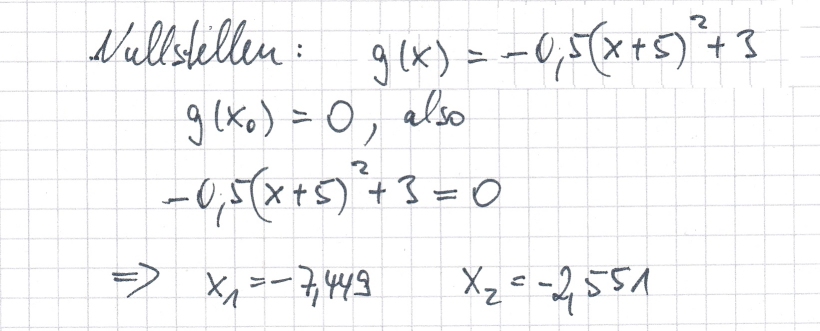 Nullstellen: g(x) = -0,5(x+5)² + 3
g(x₀) = 0, also
-0,5(x+5)² + 3 = 0
=> x₁ = -7,449 x₂ = -2,551